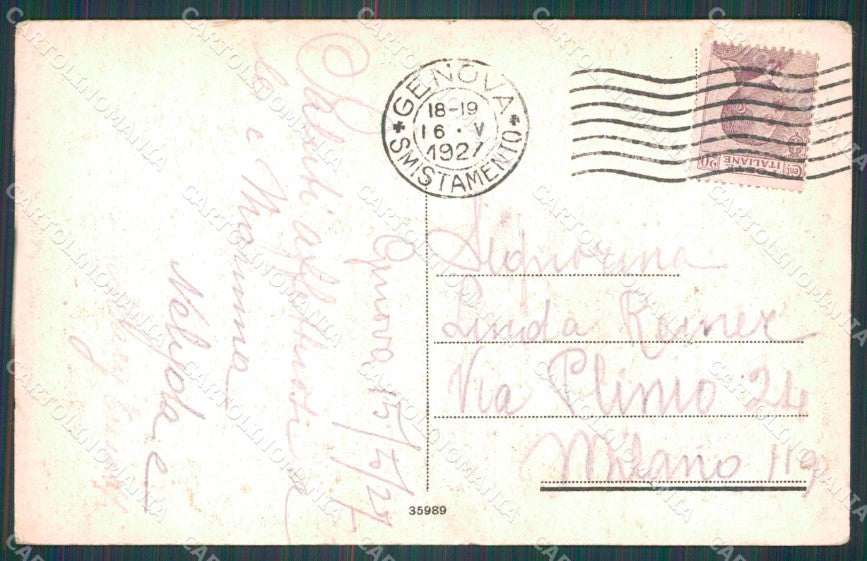 GENOVA
18-19
16 · V
1927
SMISTAMENTO
POSTE
ITALIANE
Cent. 20
Genova 15/5/27
Saluti affettuosi a
e Mamma
Nelyda e
Signorina
Linda Rainer
Via Plinio 24
Milano 119
35989
CARTOLINOMANIA